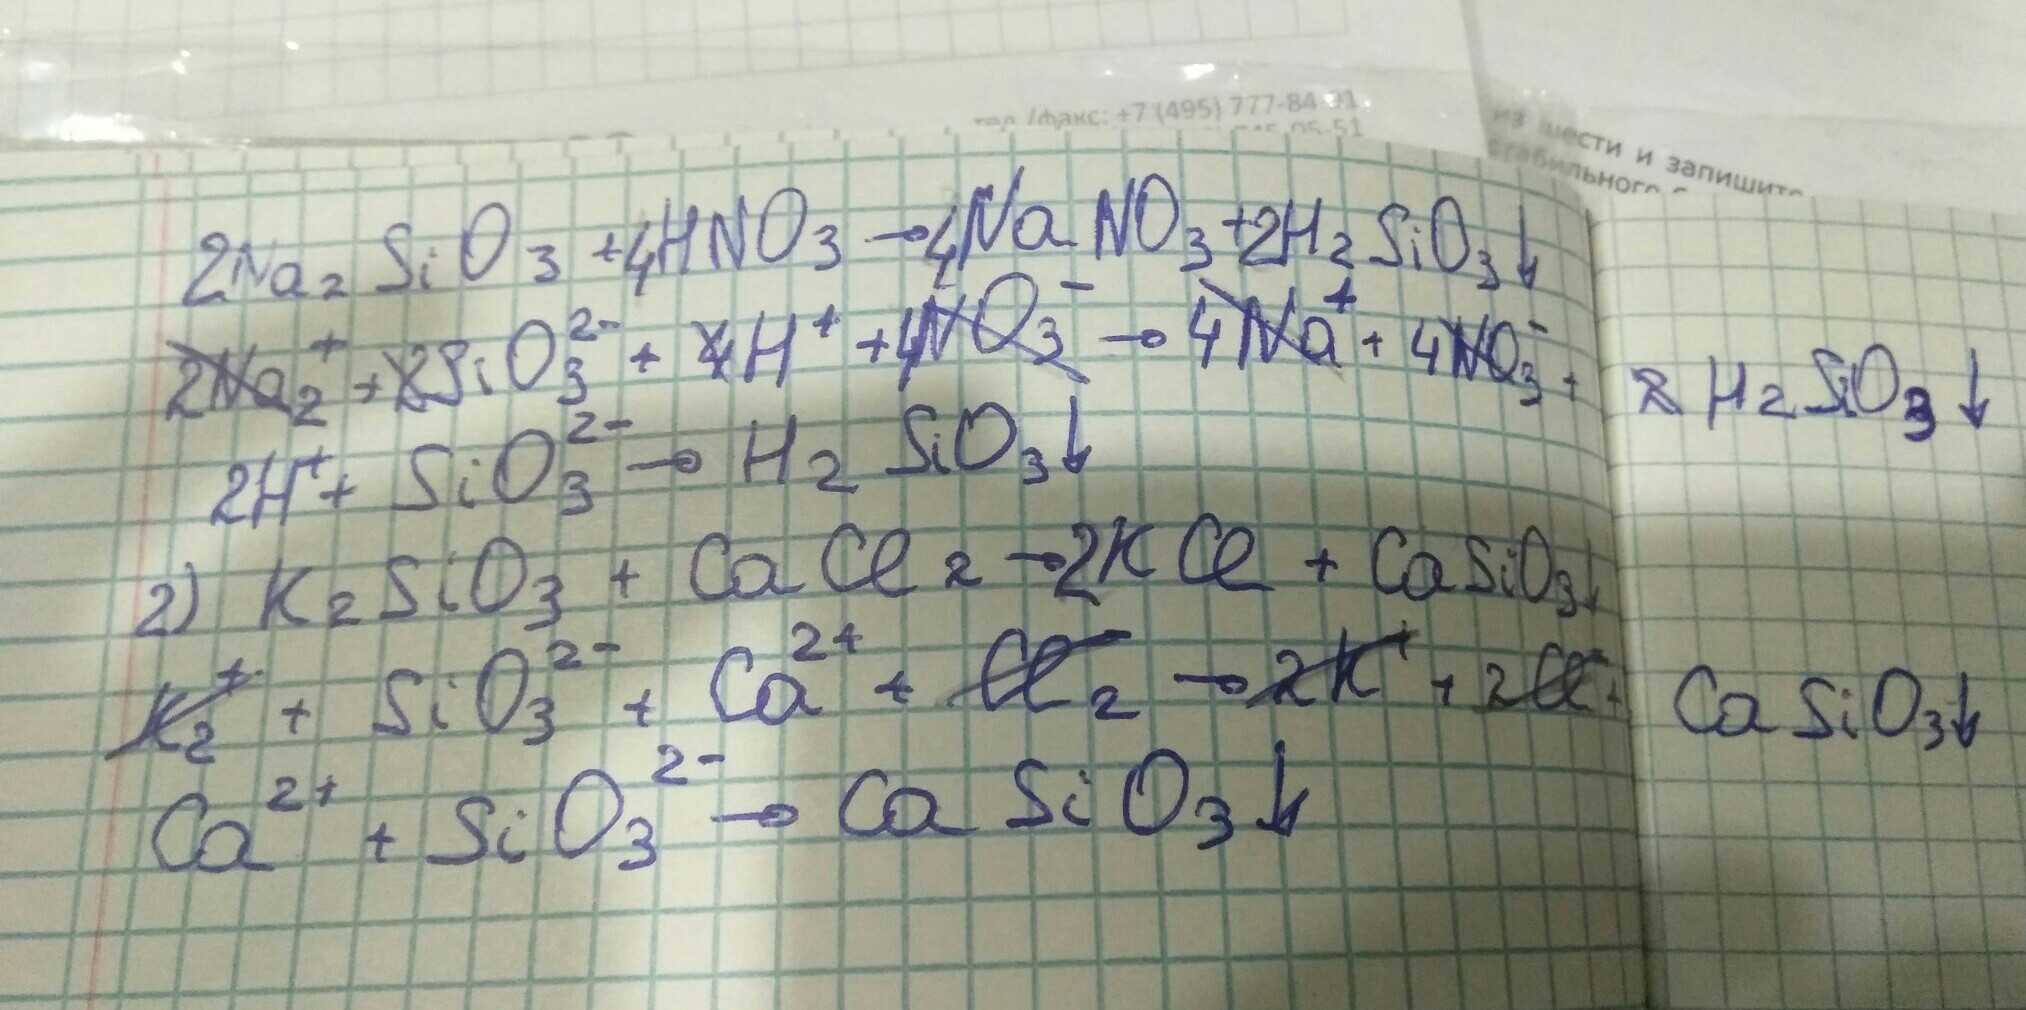 тел /факс: +7 (495) 777-84-91
из шести и запишите
стабильного
2Na₂SiO₃ + 4HNO₃ → 4NaNO₃ + 2H₂SiO₃↓
2Na₂⁺ + 2SiO₃²⁻ + 4H⁺ + 4NO₃⁻ → 4Na⁺ + 4NO₃⁻ + 2H₂SiO₃↓
2H⁺ + SiO₃²⁻ → H₂SiO₃↓
2) K₂SiO₃ + CaCl₂ → 2KCl + CaSiO₃↓
K₂⁺ + SiO₃²⁻ + Ca²⁺ + Cl₂⁻ → 2K⁺ + 2Cl⁻ + CaSiO₃↓
Ca²⁺ + SiO₃²⁻ → CaSiO₃↓